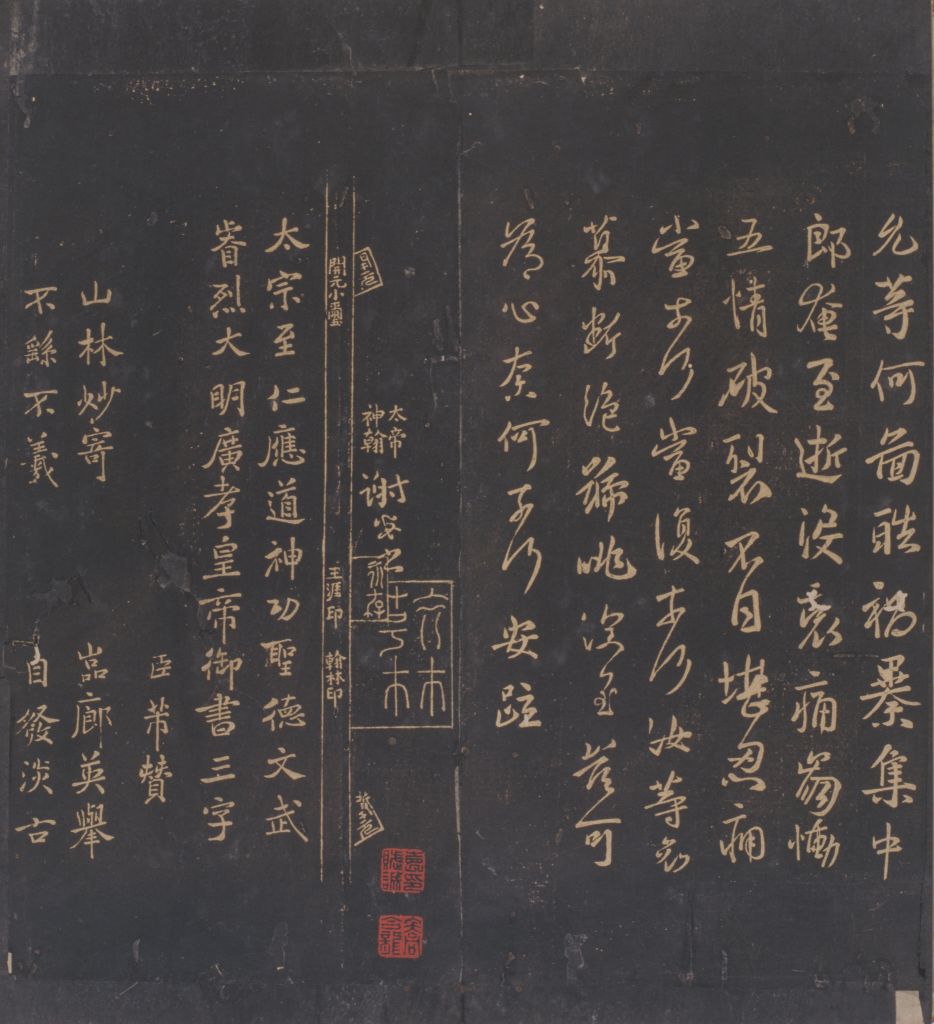 允等何啚酷禍暴集中
郎奄至逝沒哀痛崩慟
五情破裂不自堪忍痛
當奈何當復奈何汝等哀
慕斷絕號咷深至豈可
為心奈何奈何安疏
太帝
神翰
謝安書
永存
開元小璽
王涯印
翰林印
太宗至仁應道神功聖德文武
睿烈大明廣孝皇帝御書三字
臣芾贊
山林妙寄 嵓廊英舉
不繇不羲 自發淡古